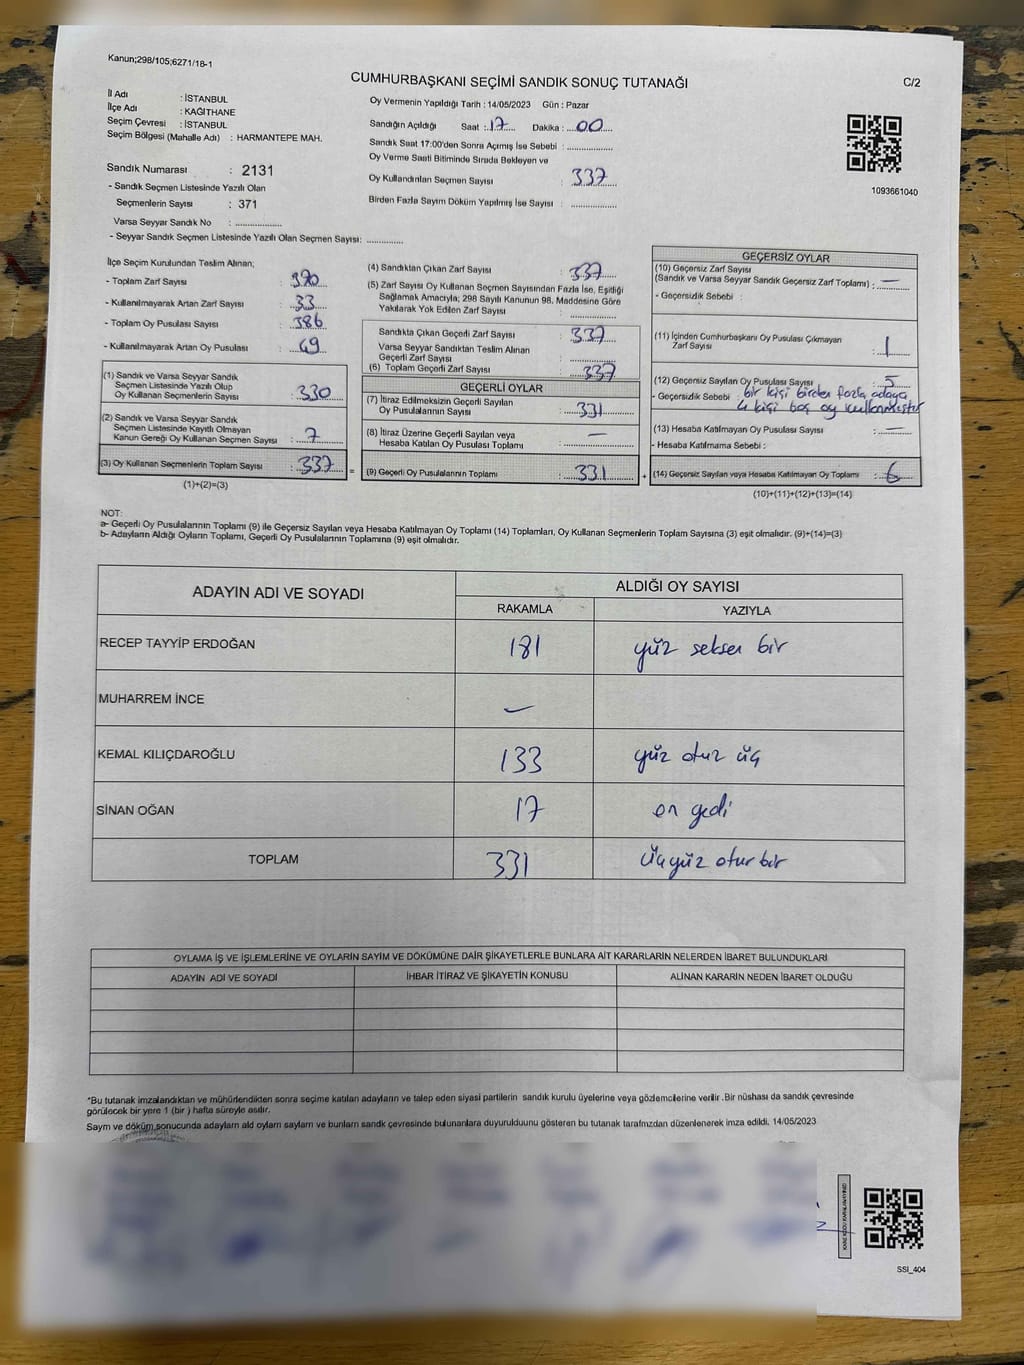 Kanun;298/105;6271/18-1
CUMHURBAŞKANI SEÇİMİ SANDIK SONUÇ TUTANAĞI
C/2
İl Adı : İSTANBUL
İlçe Adı : KAĞITHANE
Seçim Çevresi : İSTANBUL
Seçim Bölgesi (Mahalle Adı) : HARMANTEPE MAH.
Sandık Numarası : 2131
- Sandık Seçmen Listesinde Yazılı Olan
Seçmenlerin Sayısı : 371
Varsa Seyyar Sandık No : ..............
- Seyyar Sandık Seçmen Listesinde Yazılı Olan Seçmen Sayısı: ............
Oy Vermenin Yapıldığı Tarih : 14/05/2023 Gün : Pazar
Sandığın Açıldığı Saat : 17 Dakika : 00
Sandık Saat 17:00'den Sonra Açılmış İse Sebebi : ..............
Oy Verme Saati Bitiminde Sırada Bekleyen ve
Oy Kullandırılan Seçmen Sayısı : 337
Birden Fazla Sayım Döküm Yapılmış İse Sayısı : ..............
1093661040
İlçe Seçim Kurulundan Teslim Alınan;
- Toplam Zarf Sayısı : 370
- Kullanılmayarak Artan Zarf Sayısı : 33
- Toplam Oy Pusulası Sayısı : 386
- Kullanılmayarak Artan Oy Pusulası : 49
(1) Sandık ve Varsa Seyyar Sandık
Seçmen Listesinde Yazılı Olup
Oy Kullanan Seçmenlerin Sayısı : 330
(2) Sandık ve Varsa Seyyar Sandık
Seçmen Listesinde Kayıtlı Olmayan
Kanun Gereği Oy Kullanan Seçmen Sayısı : 7
(3) Oy Kullanan Seçmenlerin Toplam Sayısı : 337
(1)+(2)=(3)
(4) Sandıktan Çıkan Zarf Sayısı : 337
(5) Zarf Sayısı Oy Kullanan Seçmen Sayısından Fazla İse, Eşitliği
Sağlamak Amacıyla; 298 Sayılı Kanunun 98. Maddesine Göre
Yakılarak Yok Edilen Zarf Sayısı : ..............
Sandıkta Çıkan Geçerli Zarf Sayısı : 337
Varsa Seyyar Sandıktan Teslim Alınan
Geçerli Zarf Sayısı : ..............
(6) Toplam Geçerli Zarf Sayısı : 337
GEÇERLİ OYLAR
(7) İtiraz Edilmeksizin Geçerli Sayılan
Oy Pusulalarının Sayısı : 331
(8) İtiraz Üzerine Geçerli Sayılan veya
Hesaba Katılan Oy Pusulası Toplamı : —
(9) Geçerli Oy Pusulalarının Toplamı : 331
GEÇERSİZ OYLAR
(10) Geçersiz Zarf Sayısı
(Sandık ve Varsa Seyyar Sandık Geçersiz Zarf Toplamı) : —
- Geçersizlik Sebebi :
(11) İçinden Cumhurbaşkanı Oy Pusulası Çıkmayan
Zarf Sayısı : 1
(12) Geçersiz Sayılan Oy Pusulası Sayısı : 5
- Geçersizlik Sebebi : bir kişi birden fazla adaya
4 kişi boş oy kullanmıştır
(13) Hesaba Katılmayan Oy Pusulası Sayısı : —
- Hesaba Katılmama Sebebi :
(14) Geçersiz Sayılan veya Hesaba Katılmayan Oy Toplamı : 6
(10)+(11)+(12)+(13)=(14)
NOT:
a- Geçerli Oy Pusulalarının Toplamı (9) ile Geçersiz Sayılan veya Hesaba Katılmayan Oy Toplamı (14) Toplamları, Oy Kullanan Seçmenlerin Toplam Sayısına (3) eşit olmalıdır. (9)+(14)=(3)
b- Adayların Aldığı Oyların Toplamı, Geçerli Oy Pusulalarının Toplamına (9) eşit olmalıdır.
ADAYIN ADI VE SOYADI ALDIĞI OY SAYISI
RAKAMLA YAZIYLA
RECEP TAYYİP ERDOĞAN 181 yüz seksen bir
MUHARREM İNCE —
KEMAL KILIÇDAROĞLU 133 yüz otuz üç
SİNAN OĞAN 17 on yedi
TOPLAM 331 üçyüz otuz bir
OYLAMA İŞ VE İŞLEMLERİNE VE OYLARIN SAYIM VE DÖKÜMÜNE DAİR ŞİKAYETLERLE BUNLARA AİT KARARLARIN NELERDEN İBARET BULUNDUKLARI
ADAYIN ADI VE SOYADI İHBAR İTİRAZ VE ŞİKAYETİN KONUSU ALINAN KARARIN NEDEN İBARET OLDUĞU
*Bu tutanak imzalandıktan ve mühürlendikten sonra seçime katılan adayların ve talep eden siyasi partilerin sandık kurulu üyelerine veya gözlemcilerine verilir .Bir nüshası da sandık çevresinde
görülecek bir yere 1 (bir ) hafta süreyle asılır.
Sayım ve döküm sonucunda adayların ald oyların sayların ve bunların sandık çevresinde bulunanlara duyurulduunu gösteren bu tutanak tarafmzdan düzenlenerek imza edildi. 14/05/2023
SSI_404